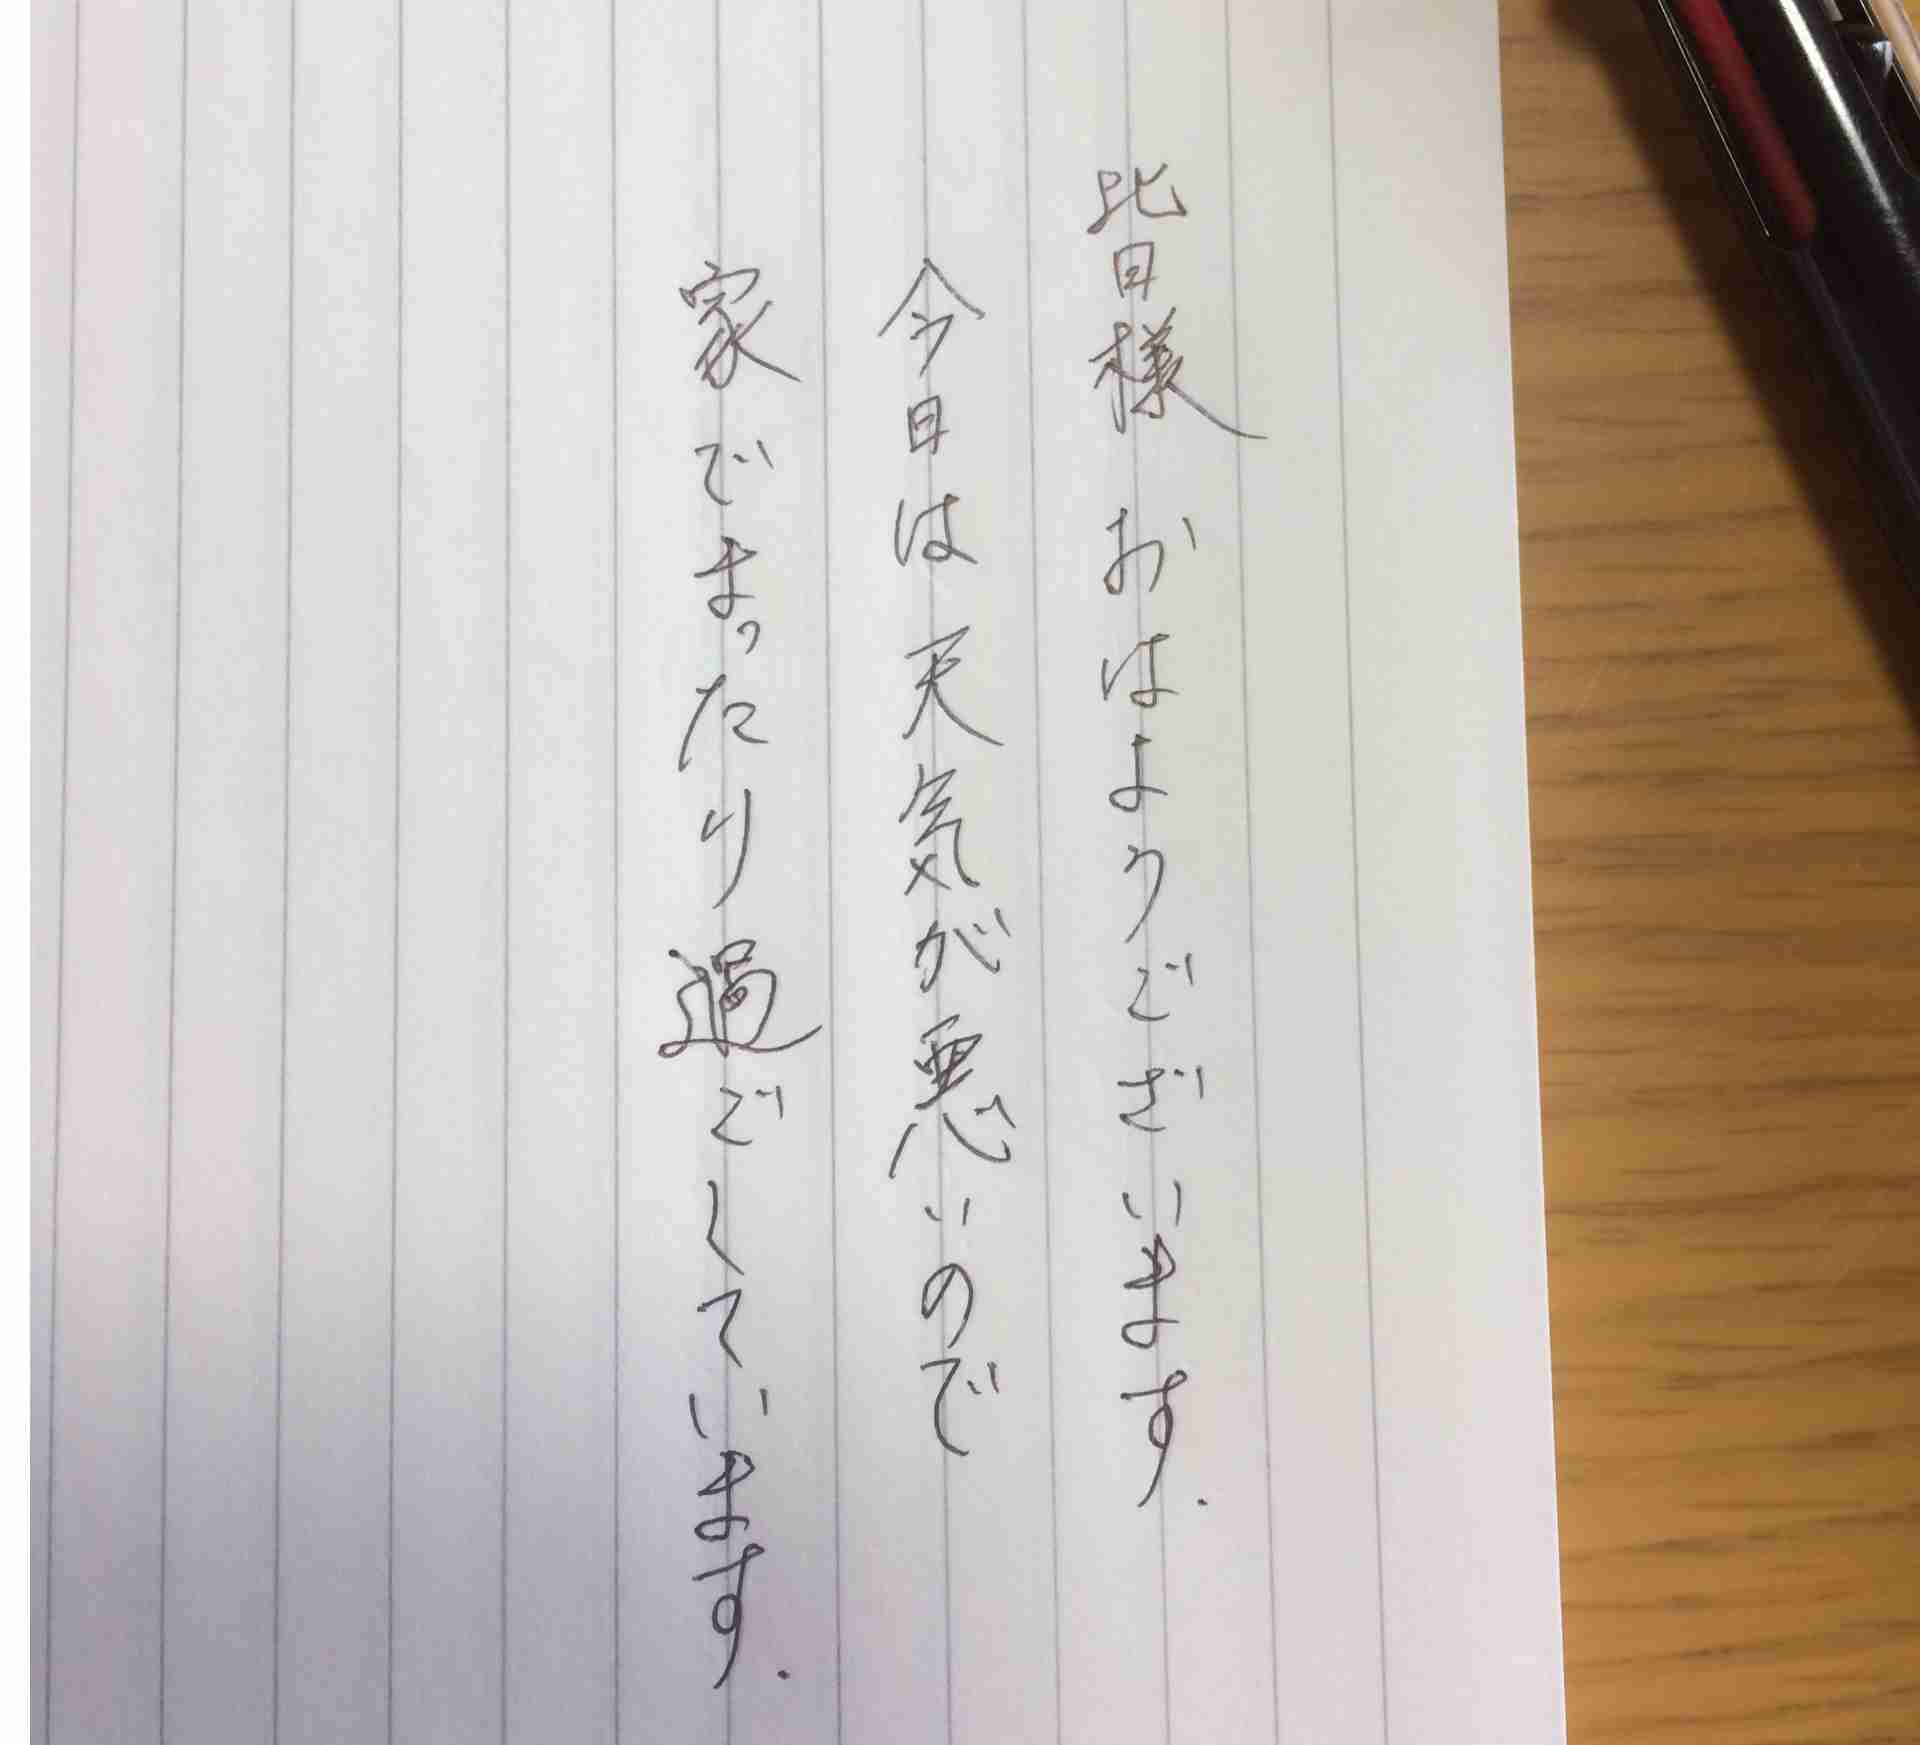 皆様おはようございます.
今日は天気が悪いので
家でまったり過ごしています.